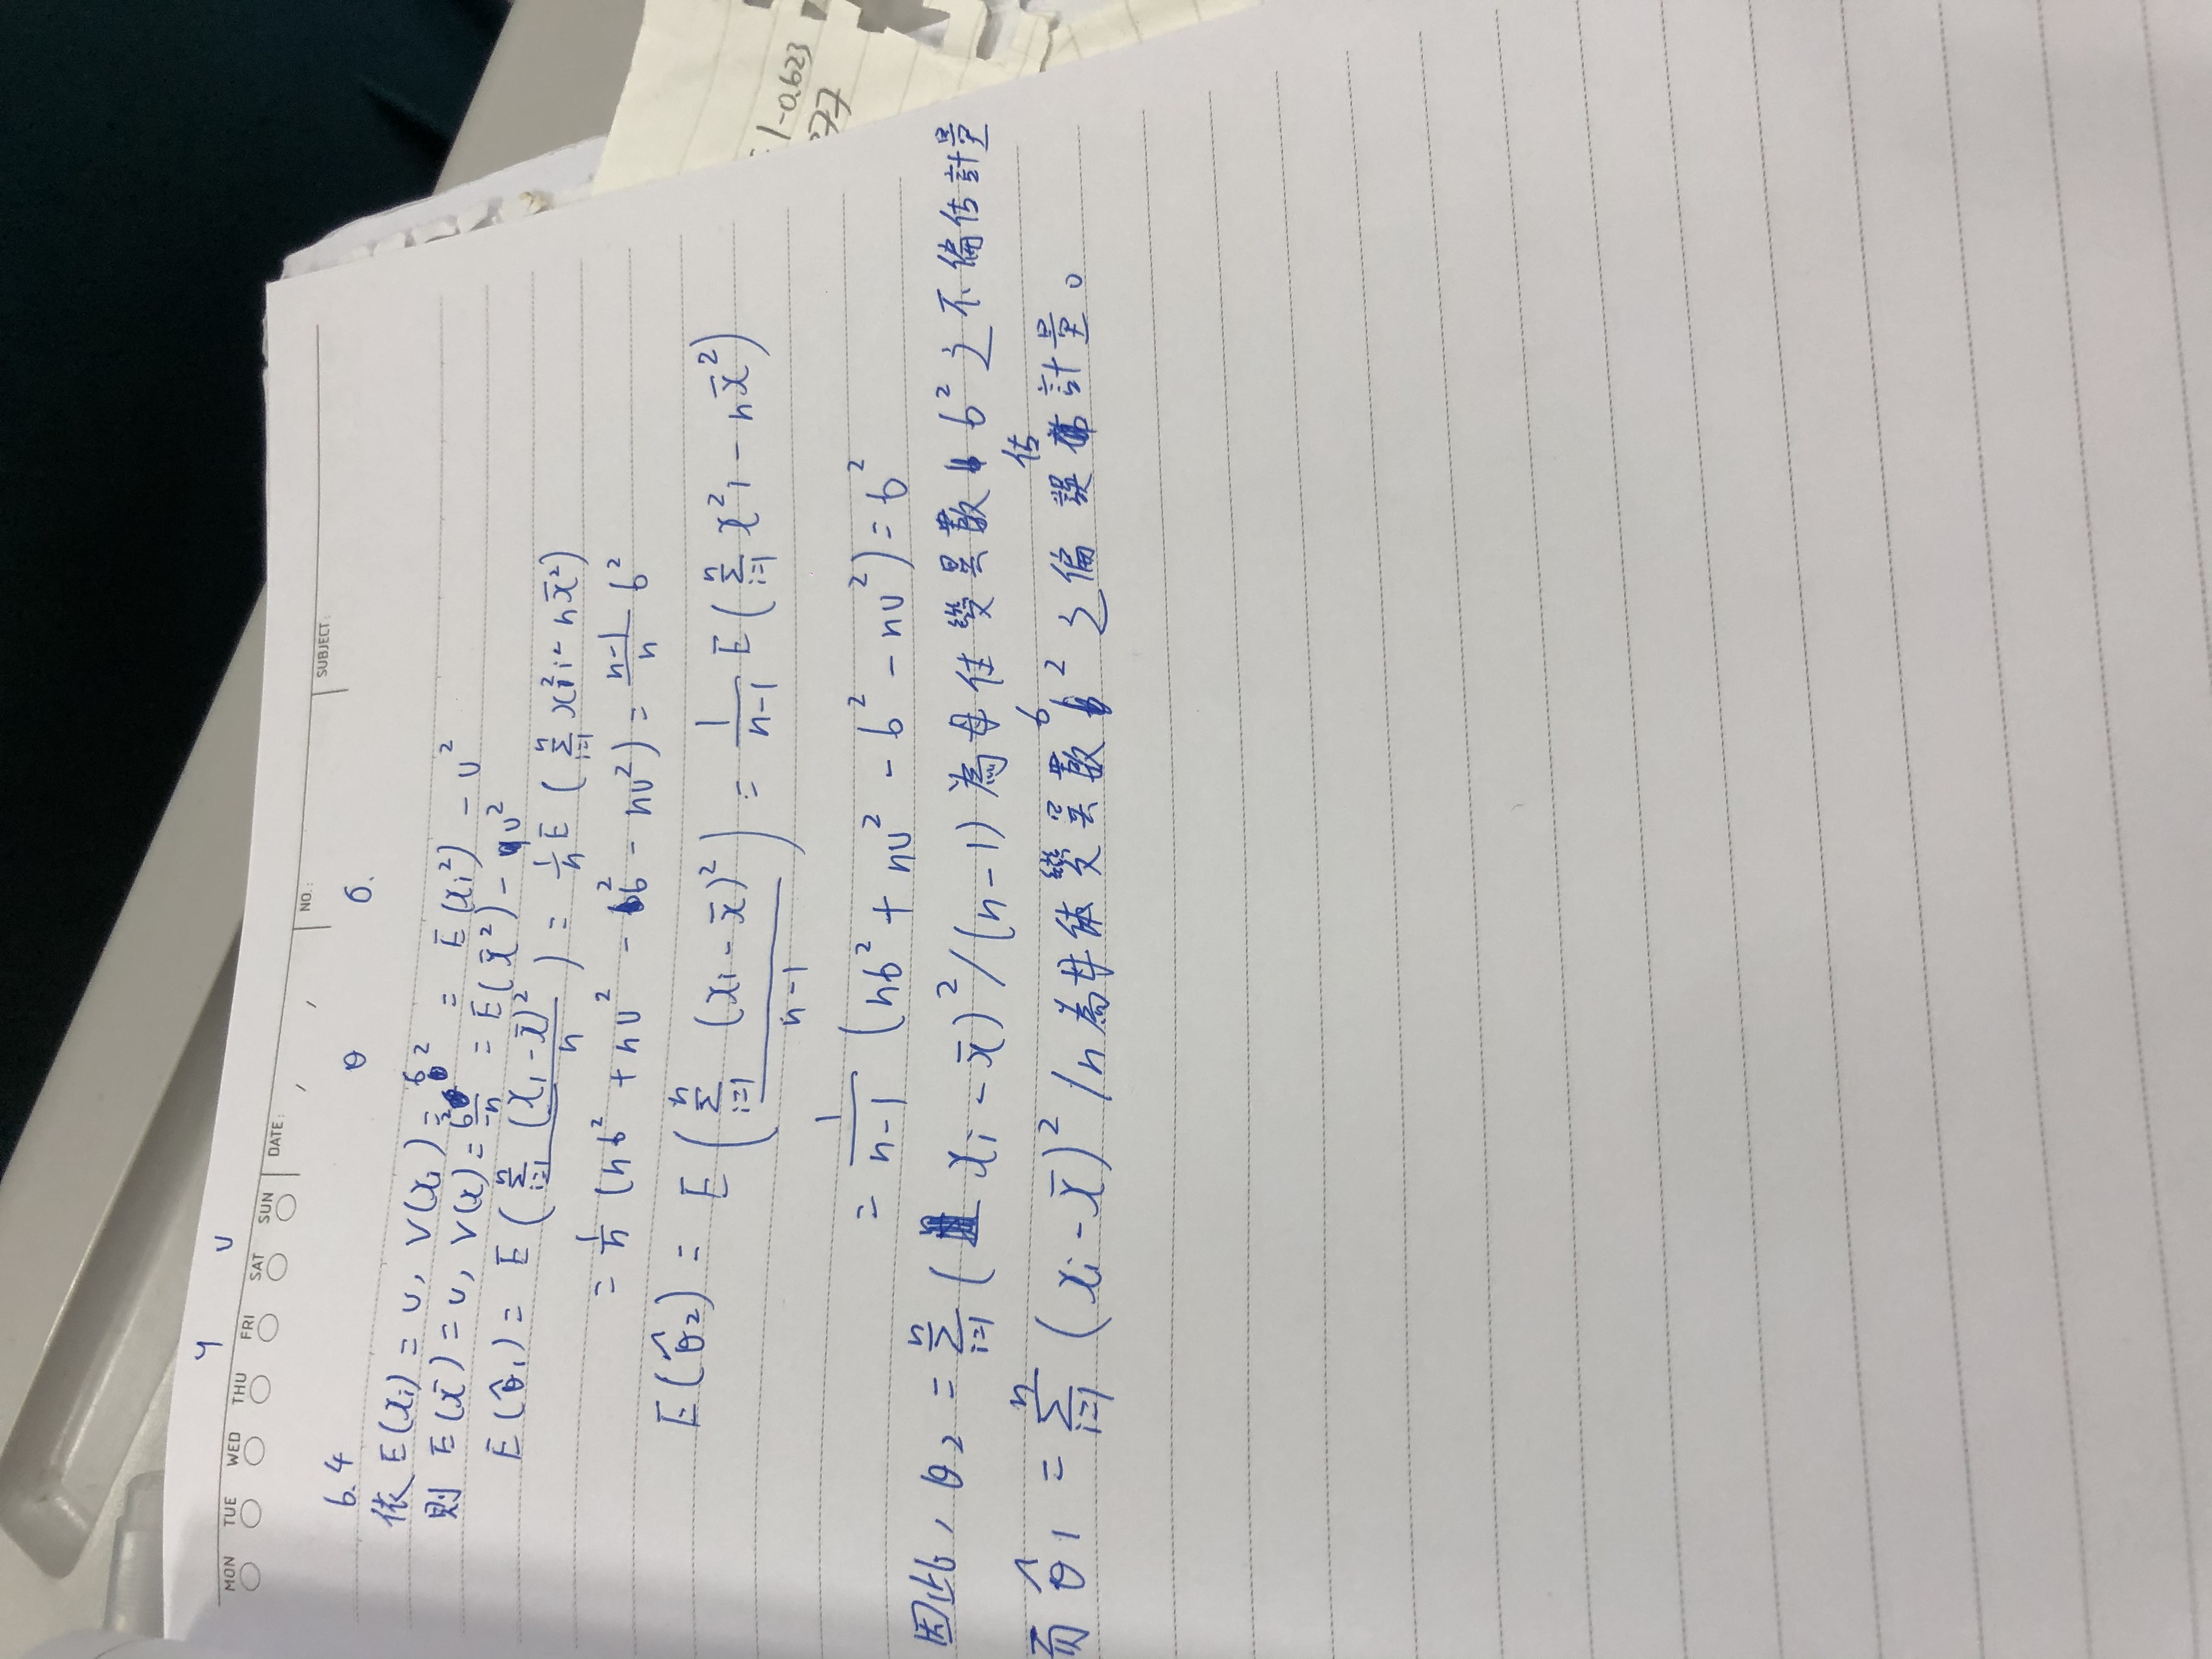 y u
MON TUE WED THU FRI SAT SUN DATE: / / NO.: SUBJECT:
6.4 θ б.
依 E(xi) = u, V(xi) = б² = E(xi²) - u²
則 E(x̄) = u, V(x) = б²/n = E(x̄²) - u²
E(θ̂1) = E(Σ_{i=1}^{n} (xi - x̄)² / n) = 1/n E(Σ_{i=1}^{n} x²i - nx̄²)
= 1/n (nб² + nu² - б² - nu²) = n-1/n б²
E(θ̂2) = E(Σ_{i=1}^{n} (xi - x̄)² / n-1) = 1/n-1 E(Σ_{i=1}^{n} x²i - nx̄²)
= 1/n-1 (nб² + nu² - б² - nu²) = б²
因此, θ2 = Σ_{i=1}^{n} (xi - x̄)²/(n-1) 為母体變異數 б² 之不偏估計量
而 θ̂1 = Σ_{i=1}^{n} (xi - x̄)²/n 為母体變異數 б² 之偏誤估計量。
1-0.623
77